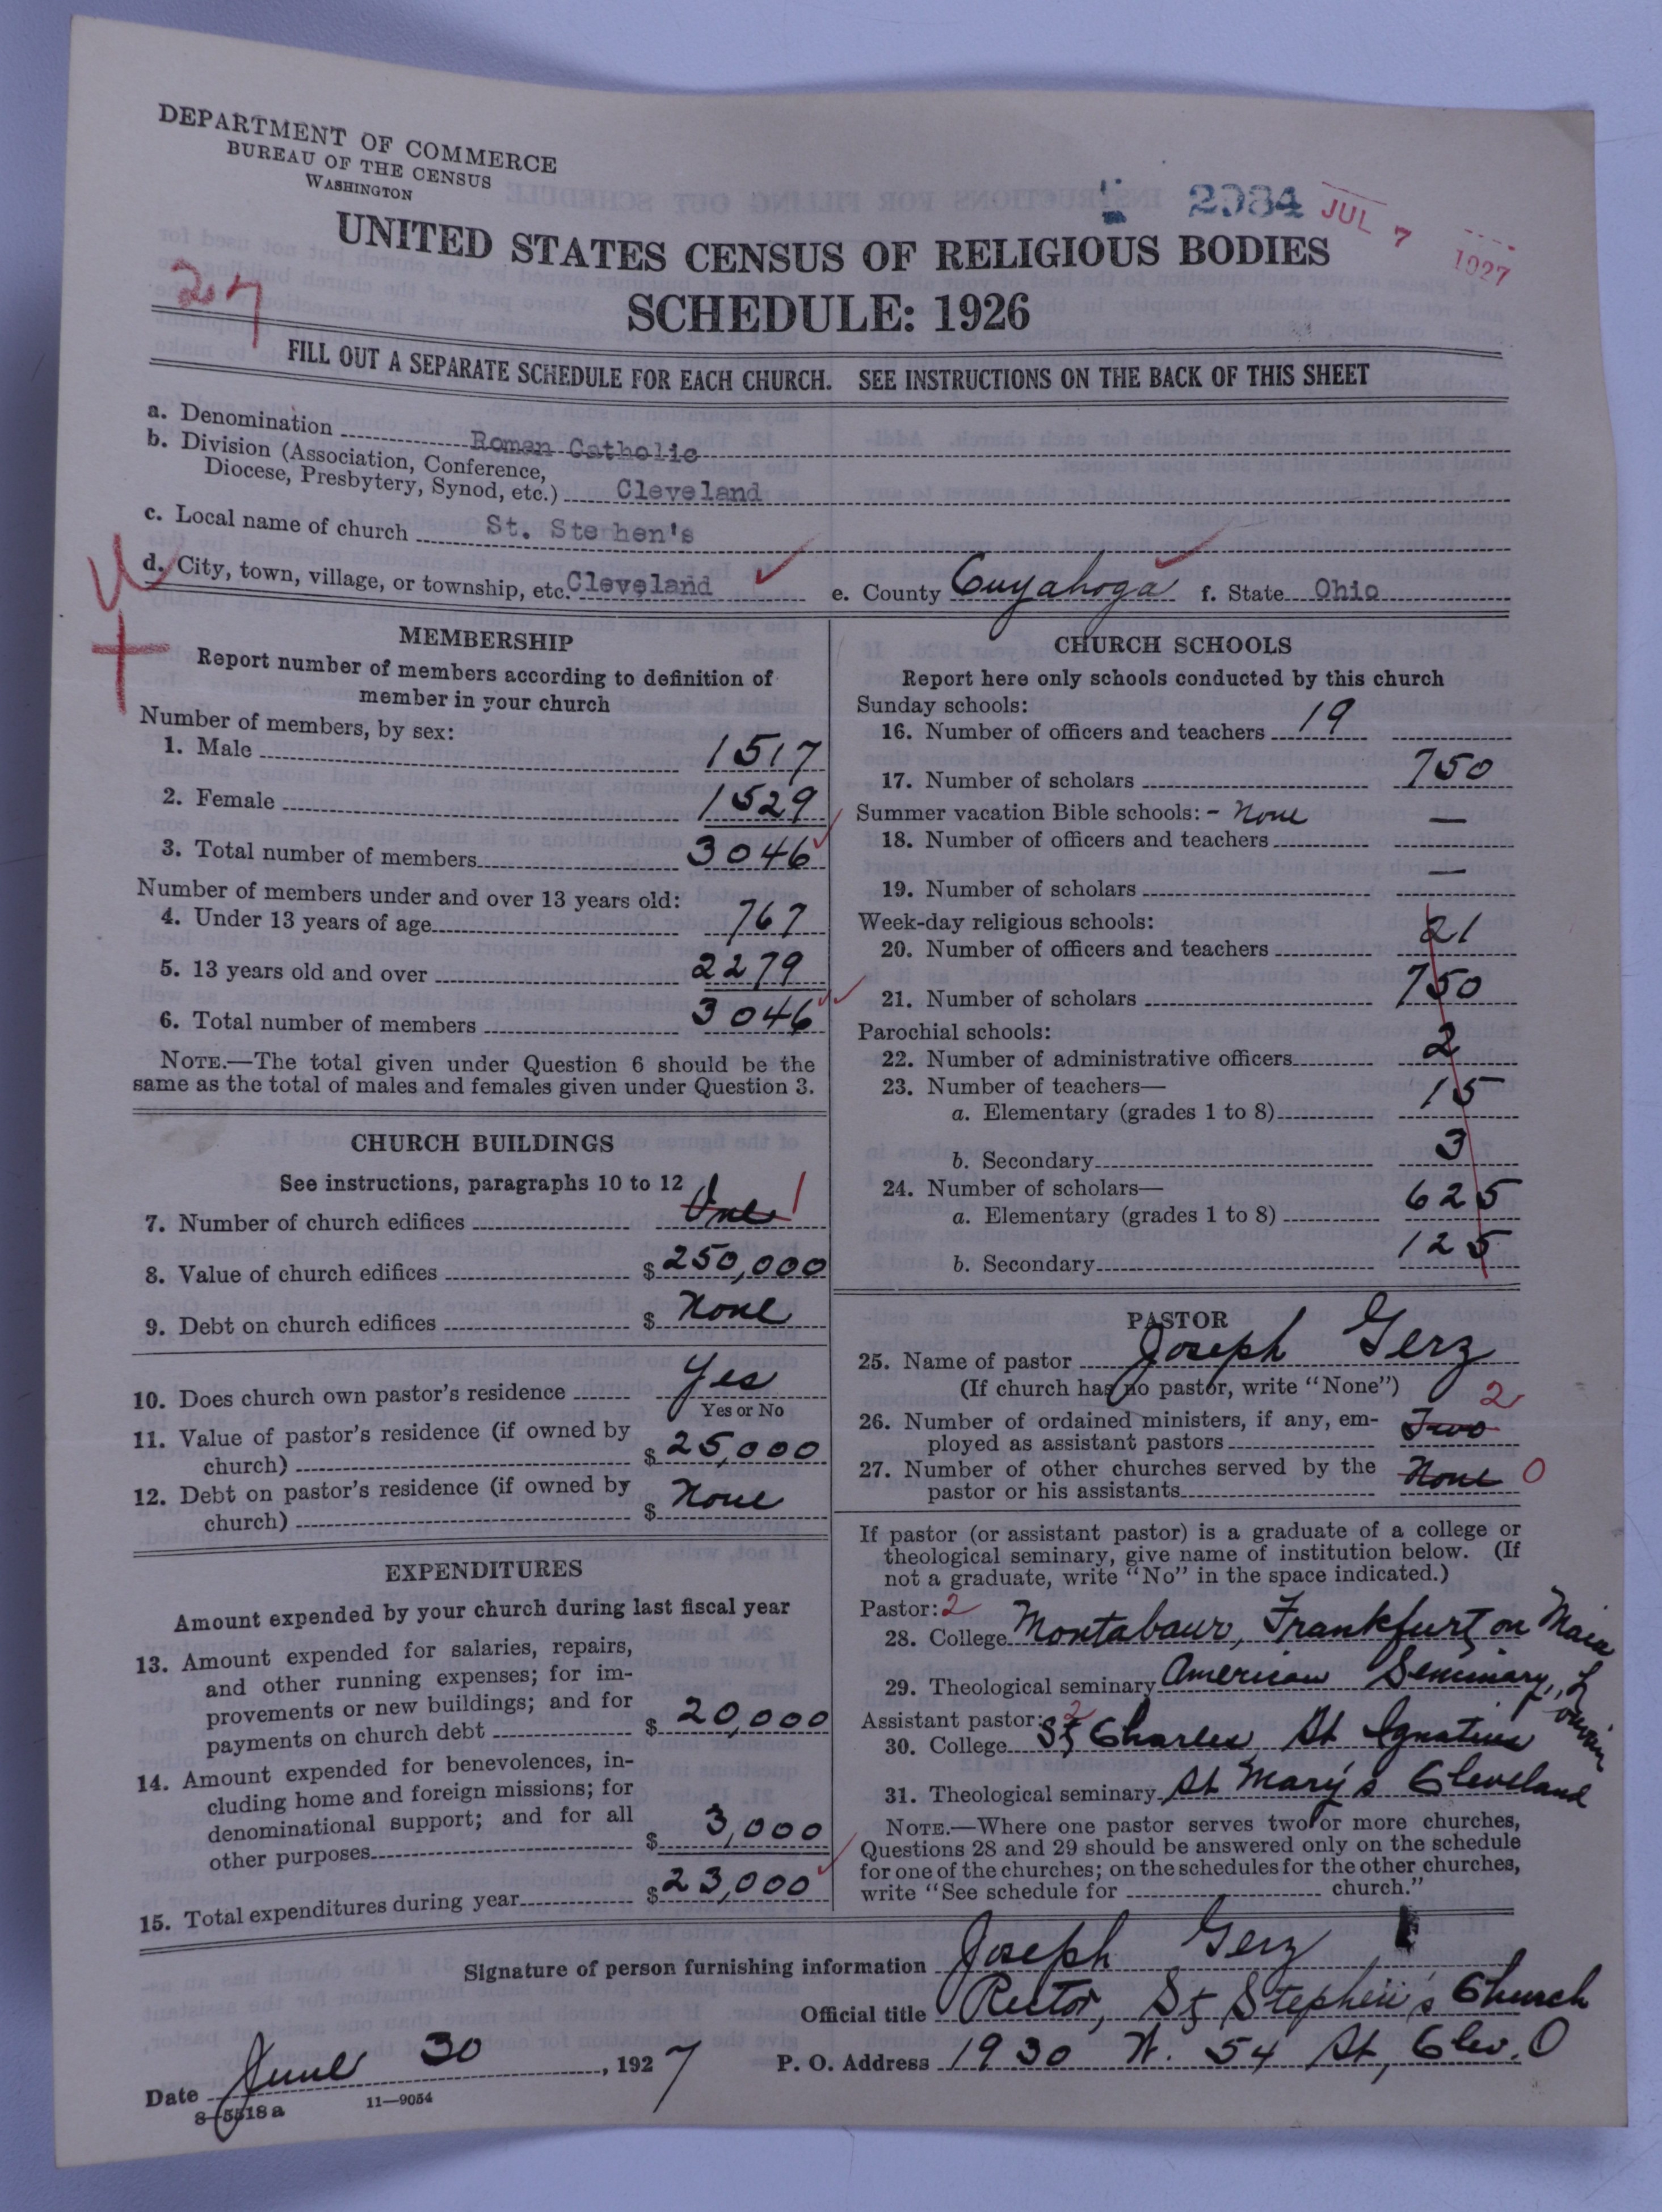 DEPARTMENT OF COMMERCE
BUREAU OF THE CENSUS
WASHINGTON
2984 JUL 7 1927
UNITED STATES CENSUS OF RELIGIOUS BODIES
27
SCHEDULE: 1926
FILL OUT A SEPARATE SCHEDULE FOR EACH CHURCH. SEE INSTRUCTIONS ON THE BACK OF THIS SHEET
a. Denomination Roman Catholic
b. Division (Association, Conference,
Diocese, Presbytery, Synod, etc.) Cleveland
c. Local name of church St. Stephen's
d. City, town, village, or township, etc. Cleveland e. County Cuyahoga f. State Ohio
MEMBERSHIP
Report number of members according to definition of
member in your church
Number of members, by sex:
1. Male 1517
2. Female 1529
3. Total number of members 3046
Number of members under and over 13 years old:
4. Under 13 years of age 767
5. 13 years old and over 2279
6. Total number of members 3046
NOTE.—The total given under Question 6 should be the
same as the total of males and females given under Question 3.
CHURCH BUILDINGS
See instructions, paragraphs 10 to 12
7. Number of church edifices One 1
8. Value of church edifices $ 250,000
9. Debt on church edifices $ None
10. Does church own pastor's residence Yes
Yes or No
11. Value of pastor's residence (if owned by
church) $ 25,000
12. Debt on pastor's residence (if owned by
church) $ None
EXPENDITURES
Amount expended by your church during last fiscal year
13. Amount expended for salaries, repairs,
and other running expenses; for im-
provements or new buildings; and for
payments on church debt $ 20,000
14. Amount expended for benevolences, in-
cluding home and foreign missions; for
denominational support; and for all
other purposes $ 3,000
15. Total expenditures during year $ 23,000
CHURCH SCHOOLS
Report here only schools conducted by this church
Sunday schools:
16. Number of officers and teachers 19
17. Number of scholars 750
Summer vacation Bible schools: - None
18. Number of officers and teachers —
19. Number of scholars —
Week-day religious schools:
20. Number of officers and teachers 21
21. Number of scholars 750
Parochial schools:
22. Number of administrative officers 2
23. Number of teachers—
a. Elementary (grades 1 to 8) 15
b. Secondary 3
24. Number of scholars—
a. Elementary (grades 1 to 8) 625
b. Secondary 125
PASTOR
25. Name of pastor Joseph Gerz
(If church has no pastor, write "None")
26. Number of ordained ministers, if any, em-
ployed as assistant pastors Two 2
27. Number of other churches served by the
pastor or his assistants None 0
If pastor (or assistant pastor) is a graduate of a college or
theological seminary, give name of institution below. (If
not a graduate, write "No" in the space indicated.)
Pastor: 2
28. College Montabaur, Frankfurt on Main
29. Theological seminary American Seminary, Louvain
Assistant pastor: 2
30. College St Charles, St Ignatius
31. Theological seminary St Mary's Cleveland
NOTE.—Where one pastor serves two or more churches,
Questions 28 and 29 should be answered only on the schedule
for one of the churches; on the schedules for the other churches,
write "See schedule for church."
Signature of person furnishing information Joseph Gerz
Official title Rector, St Stephen's Church
Date June 30, 1927 P. O. Address 1930 W. 54 St, Clev. O
8—5518 a 11—9054